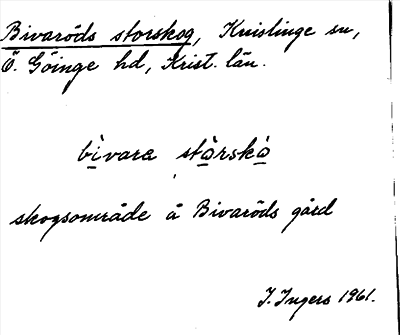 Bivaröds storskog, Knislinge sn,
Ö. Göinge hd, Krist. län.
bìvara stòrskò
skogsområde å Bivaröds gård
I. Ingers 1961.